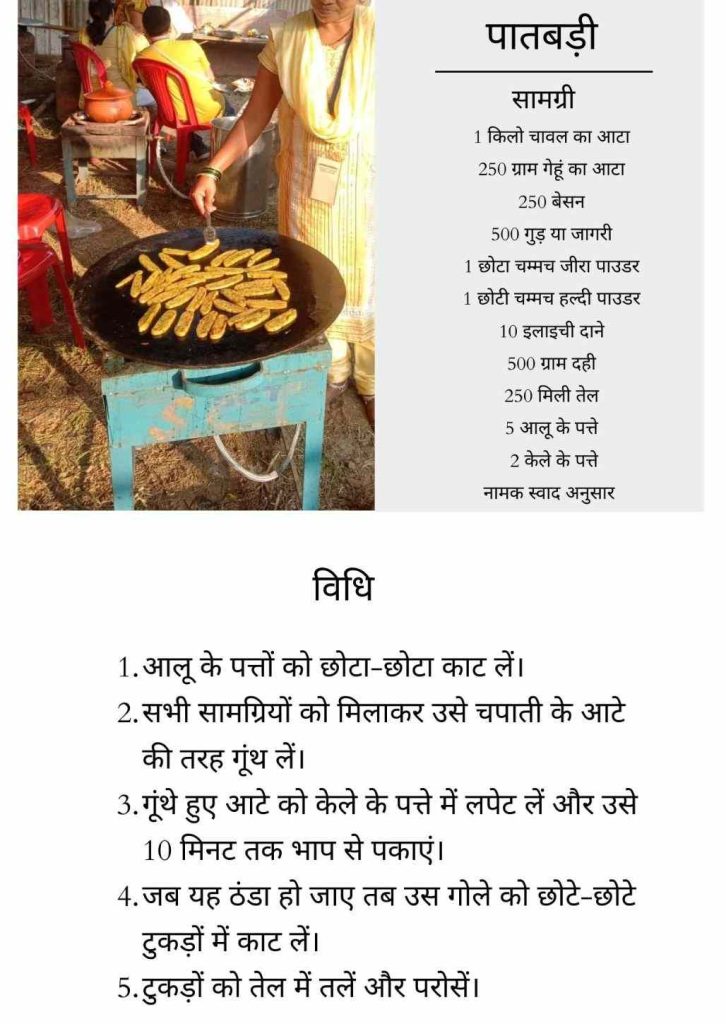 पातबड़ी
सामग्री
1 किलो चावल का आटा
250 ग्राम गेहूं का आटा
250 बेसन
500 गुड़ या जागरी
1 छोटा चम्मच जीरा पाउडर
1 छोटी चम्मच हल्दी पाउडर
10 इलाइची दाने
500 ग्राम दही
250 मिली तेल
5 आलू के पत्ते
2 केले के पत्ते
नामक स्वाद अनुसार
विधि
1. आलू के पत्तों को छोटा-छोटा काट लें।
2. सभी सामग्रियों को मिलाकर उसे चपाती के आटे
की तरह गूंथ लें।
3. गूंथे हुए आटे को केले के पत्ते में लपेट लें और उसे
10 मिनट तक भाप से पकाएं।
4. जब यह ठंडा हो जाए तब उस गोले को छोटे-छोटे
टुकड़ों में काट लें।
5. टुकड़ों को तेल में तलें और परोसें।